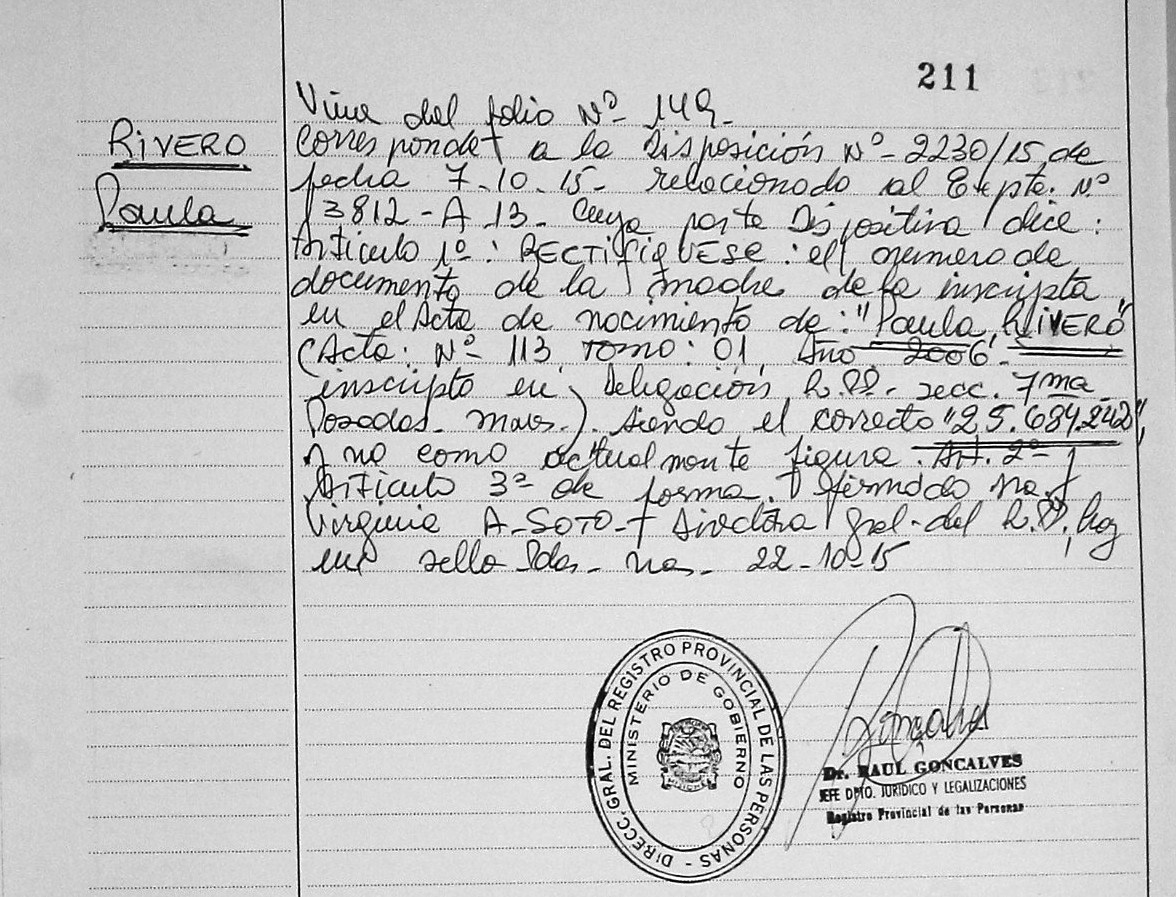 211
Viene del folio Nº 149-
RIVERO
Paula
Corresponde a la Disposición Nº- 2230/15 de
fecha 7-10-15- relacionado al Expte. Nº
3812-A-13- Cuya parte Dispositiva dice:
Artículo 1º: RECTIFIQUESE: el numero de
documento de la madre de la inscripta
en el Acta de nacimiento de: "Paula RIVERO"
(Acta: Nº 113 Tomo: 01 Año 2006
inscripta en Delegación R.P. secc. 7ma
Posadas- Mnes-). siendo el correcto "25.684.242",
y no como actualmente figura. Art. 2º- y
Artículo 3º de forma. firmado
Virginia A-SOTO- Directora Gral-del R.P. hay
un sello Pdas- 22-10-15
DIRECC. GRAL. DEL REGISTRO PROVINCIAL DE LAS PERSONAS -
MINISTERIO DE GOBIERNO
MISIONES
Dr. RAUL GONCALVES
JEFE DPTO. JURIDICO Y LEGALIZACIONES
Registro Provincial de las Personas